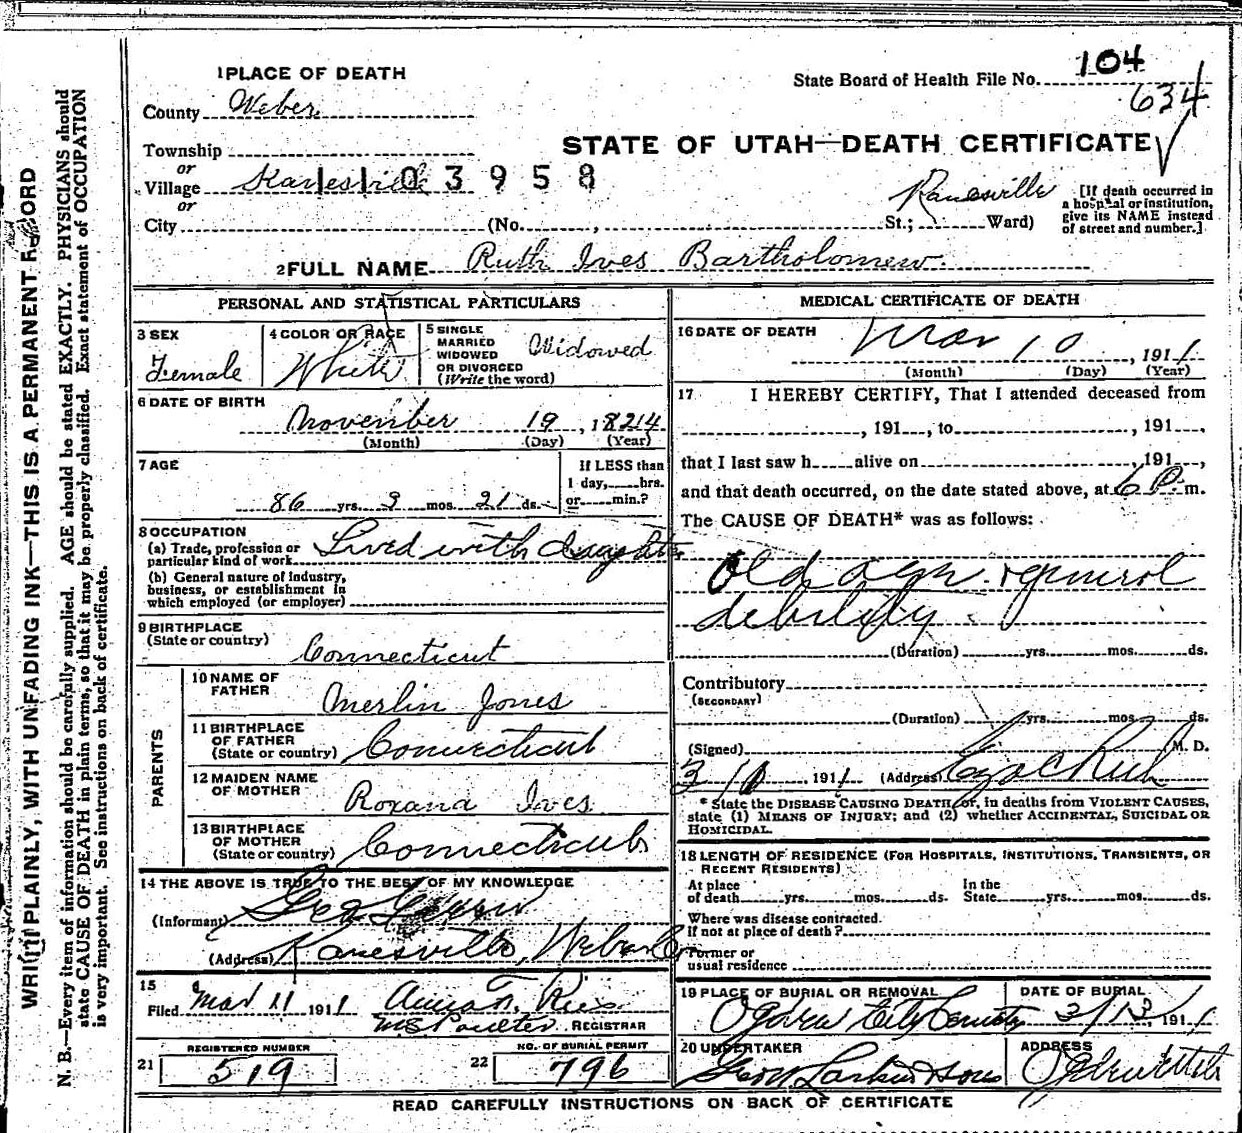 WRITE PLAINLY, WITH UNFADING INK—THIS IS A PERMANENT RECORD
N. B.—Every item of information should be carefully supplied. AGE should be stated EXACTLY. PHYSICIANS should
state CAUSE OF DEATH in plain terms, so that it may be properly classified. Exact statement of OCCUPATION
is very important. See instructions on back of certificate.
1 PLACE OF DEATH
State Board of Health File No. 104
634
County Weber
STATE OF UTAH—DEATH CERTIFICATE
Township
or
Village Kanesville 03958
or
Kanesville
City (No. , St.; Ward)
[If death occurred in
a hospital or institution,
give its NAME instead
of street and number.]
2 FULL NAME Ruth Ives Bartholomew
PERSONAL AND STATISTICAL PARTICULARS
3 SEX
Female
4 COLOR OR RACE
White
5 SINGLE
MARRIED
WIDOWED
OR DIVORCED
(Write the word)
Widowed
6 DATE OF BIRTH
November 19, 1824
(Month) (Day) (Year)
7 AGE
86 yrs. 3 mos. 21 ds.
If LESS than
1 day, hrs.
or min.?
8 OCCUPATION
(a) Trade, profession or
particular kind of work Lived with daughter
(b) General nature of industry,
business, or establishment in
which employed (or employer)
9 BIRTHPLACE
(State or country)
Connecticut
PARENTS
10 NAME OF
FATHER
Merlin Jones
11 BIRTHPLACE
OF FATHER
(State or country) Connecticut
12 MAIDEN NAME
OF MOTHER
Roxana Ives
13 BIRTHPLACE
OF MOTHER
(State or country) Connecticut
14 THE ABOVE IS TRUE TO THE BEST OF MY KNOWLEDGE
(Informant) Geo
(Address) Kanesville, Weber Co
15
Filed Mar 11 1911
REGISTRAR
21 REGISTERED NUMBER
519
22 NO. OF BURIAL PERMIT
796
MEDICAL CERTIFICATE OF DEATH
16 DATE OF DEATH
Mar 10, 1911
(Month) (Day) (Year)
17 I HEREBY CERTIFY, That I attended deceased from
, 191 , to , 191 ,
that I last saw h alive on , 191 ,
and that death occurred, on the date stated above, at 6 P. m.
The CAUSE OF DEATH* was as follows:
Old age general
debility
(Duration) yrs. mos. ds.
Contributory
(SECONDARY)
(Duration) yrs. mos. ds.
(Signed) (M. D.
3/10 1911 (Address) Ezra C Rich
* State the DISEASE CAUSING DEATH or, in deaths from VIOLENT CAUSES,
state (1) MEANS OF INJURY; and (2) whether ACCIDENTAL, SUICIDAL OR
HOMICIDAL.
18 LENGTH OF RESIDENCE (FOR HOSPITALS, INSTITUTIONS, TRANSIENTS, OR
RECENT RESIDENTS)
At place
of death yrs. mos. ds.
In the
State yrs. mos. ds.
Where was disease contracted.
If not at place of death?
Former or
usual residence
19 PLACE OF BURIAL OR REMOVAL
Ogden City Cemetery
DATE OF BURIAL
3/13, 1911
20 UNDERTAKER
Geo W Larkin & Sons
ADDRESS
Ogden Utah
READ CAREFULLY INSTRUCTIONS ON BACK OF CERTIFICATE